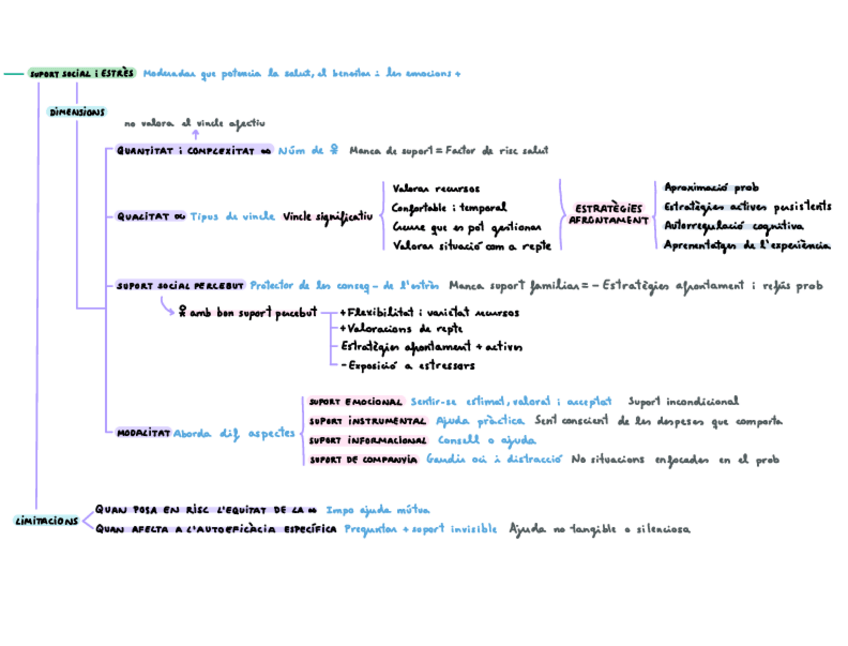 SUPORT SOCIAL i ESTRÈS Moderador que potencia la salut, el benestar i les emocions +
DIMENSIONS
no valora el vincle afectiu
QUANTITAT i COMPLEXITAT ∞ Núm de Manca de suport = Factor de risc salut
QUALITAT ∞ Tipus de vincle Vincle significatiu
Valorar recursos
Confortable i temporal
Creure que es pot gestionar
Valorar situació com a repte
ESTRATÈGIES
AFRONTAMENT
Aproximació prob
Estratègies actives persistents
Autorregulació cognitiva
Aprenentatges de l'experiència
SUPORT SOCIAL PERCEBUT Protector de les conseq - de l'estrès Manca suport familiar = - Estratègies afrontament i refús prob
amb bon suport percebut
+ Flexibilitat i varietat recursos
+ Valoracions de repte
Estratègies afrontament + actives
- Exposició a estressors
MODALITAT Aborda dif aspectes
SUPORT EMOCIONAL Sentir-se estimat, valorat i acceptat Suport incondicional
SUPORT INSTRUMENTAL Ajuda pràctica Sent conscient de les despeses que comporta
SUPORT INFORMACIONAL Consell o ajuda
SUPORT DE COMPANYIA Gaudir oci i distracció No situacions enfocades en el prob
LIMITACIONS
QUAN POSA EN RISC L'EQUITAT DE LA ∞ Impo ajuda mútua
QUAN AFECTA A L'AUTOEFICÀCIA ESPECÍFICA Preguntar + suport invisible Ajuda no tangible o silenciosa